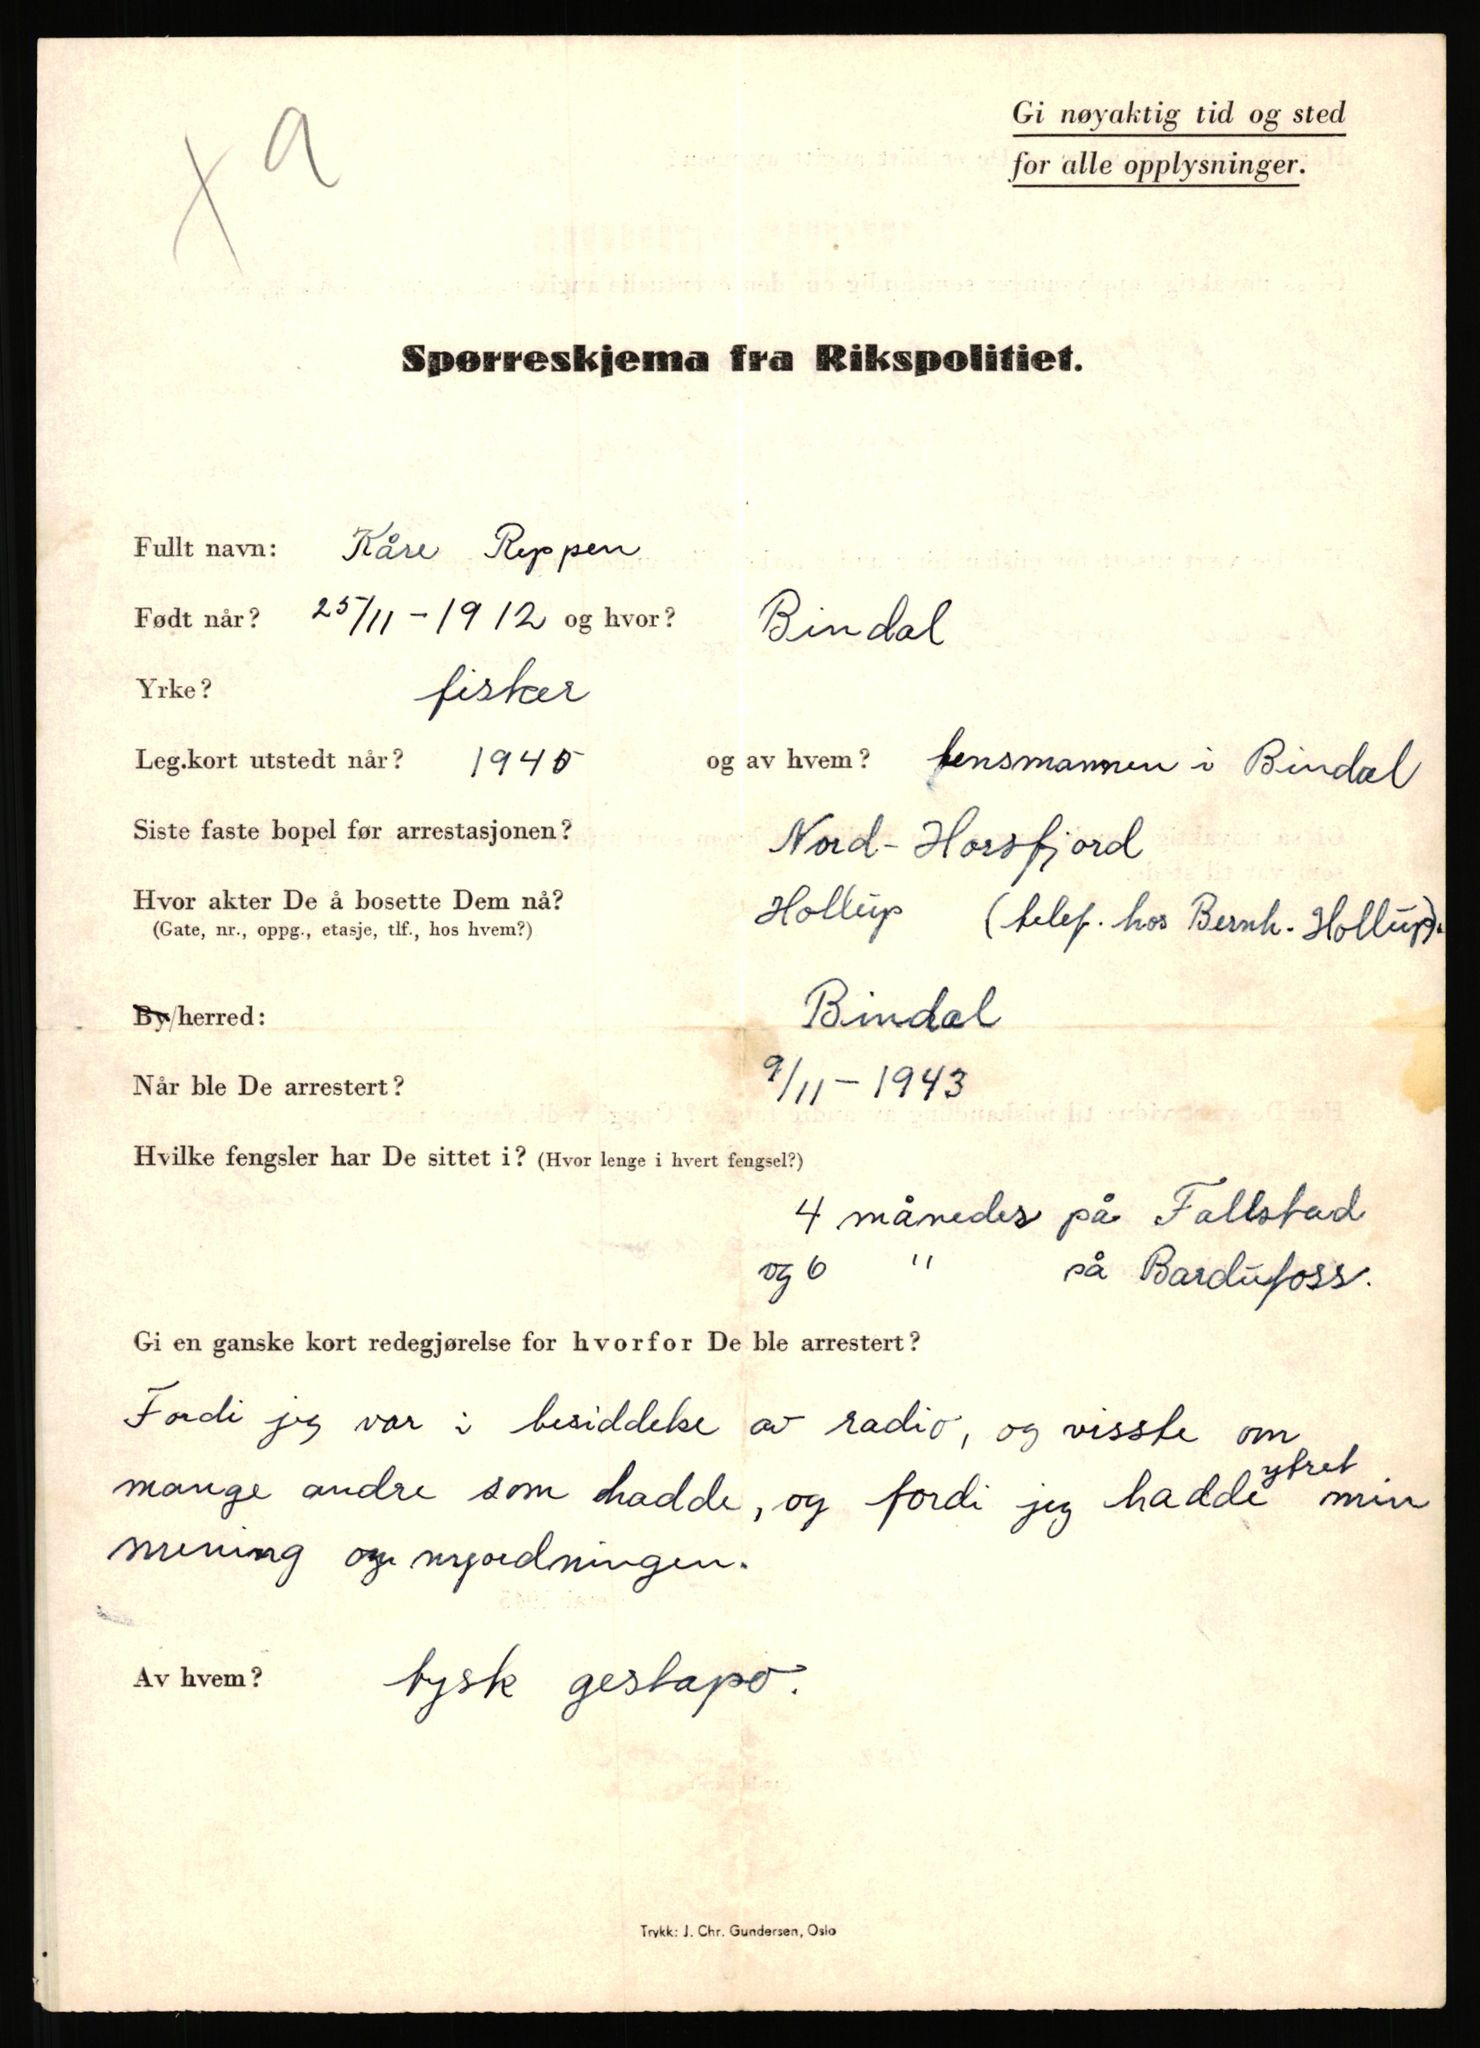 x a
Gi nøyaktig tid og sted
for alle opplysninger.
Spørreskjema fra Rikspolitiet.
Fullt navn: Kåre Reppen
Født når? 25/11 - 1912 og hvor? Bindal
Yrke? fisker
Leg.kort utstedt når? 1945 og av hvem? lensmannen i Bindal
Siste faste bopel før arrestasjonen? Nord-Horsfjord
Hvor akter De å bosette Dem nå? Hollup (telef. hos Bernh. Hollup).
(Gate, nr., oppg., etasje, tlf., hos hvem?)
By/herred: Bindal
Når ble De arrestert? 9/11 - 1943
Hvilke fengsler har De sittet i? (Hvor lenge i hvert fengsel?)
4 måneder på Fallstad
og 6 " på Bardufoss.
Gi en ganske kort redegjørelse for hvorfor De ble arrestert?
Fordi jeg var i besiddelse av radio, og visste om
mange andre som hadde, og fordi jeg hadde ytret min
mening om nyordningen.
Av hvem? tysk gestapo.
Trykk: J. Chr. Gundersen, Oslo